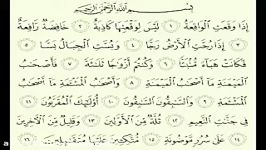 بِسْمِ اللَّهِ الرَّحْمَٰنِ الرَّحِيمِ
إِذَا وَقَعَتِ الْوَاقِعَةُ ١ لَيْسَ لِوَقْعَتِهَا كَاذِبَةٌ ٢ خَافِضَةٌ رَافِعَةٌ
٣ إِذَا رُجَّتِ الْأَرْضُ رَجًّا ٤ وَبُسَّتِ الْجِبَالُ بَسًّا ٥
فَكَانَتْ هَبَاءً مُنْبَثًّا ٦ وَكُنْتُمْ أَزْوَاجًا ثَلَاثَةً ٧ فَأَصْحَابُ
الْمَيْمَنَةِ مَا أَصْحَابُ الْمَيْمَنَةِ ٨ وَأَصْحَابُ الْمَشْأَمَةِ مَا أَصْحَابُ
الْمَشْأَمَةِ ٩ وَالسَّابِقُونَ السَّابِقُونَ ١٠ أُولَٰئِكَ الْمُقَرَّبُونَ ١١
فِي جَنَّاتِ النَّعِيمِ ١٢ ثُلَّةٌ مِنَ الْأَوَّلِينَ ١٣ وَقَلِيلٌ مِنَ الْآخِرِينَ
١٤ عَلَىٰ سُرُرٍ مَوْضُونَةٍ ١٥ مُتَّكِئِينَ عَلَيْهَا مُتَقَابِلِينَ ١٦